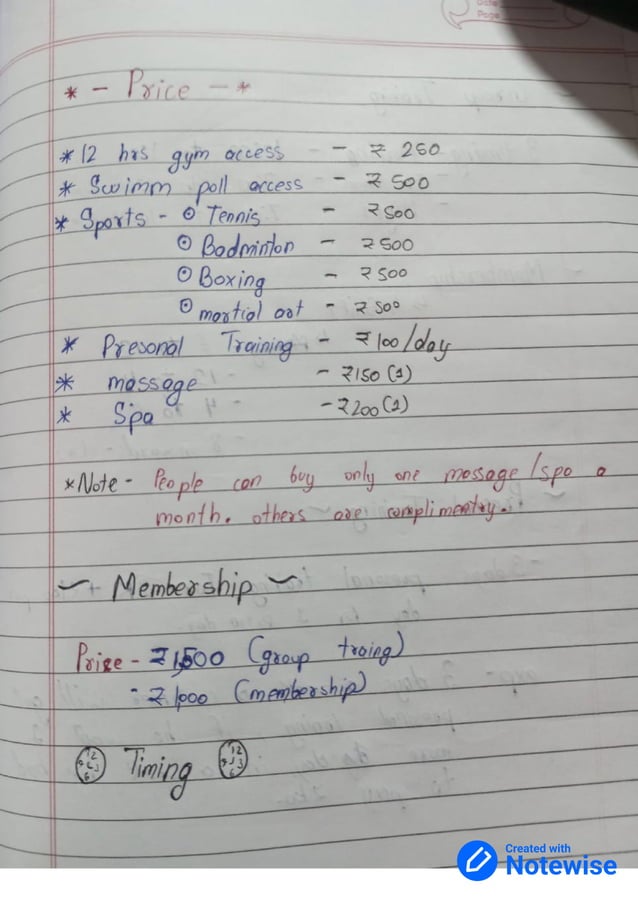 Date
Page
* - Price - *
* 12 hrs gym access - ₹ 250
* Swimm poll access - ₹ 500
* Sports - ⊙ Tennis - ₹500
⊙ Badminton - ₹500
⊙ Boxing - ₹500
⊙ martial art - ₹500
* Presonal Training - ₹100/day
* massage - ₹150 (1)
* Spa - ₹200 (1)
* Note - People can buy only one massage/spa a
month. others are complimentry.
~ Membership ~
Price - ₹1,500 (group traing)
- ₹1,000 (membership)
Timing
Created with
Notewise